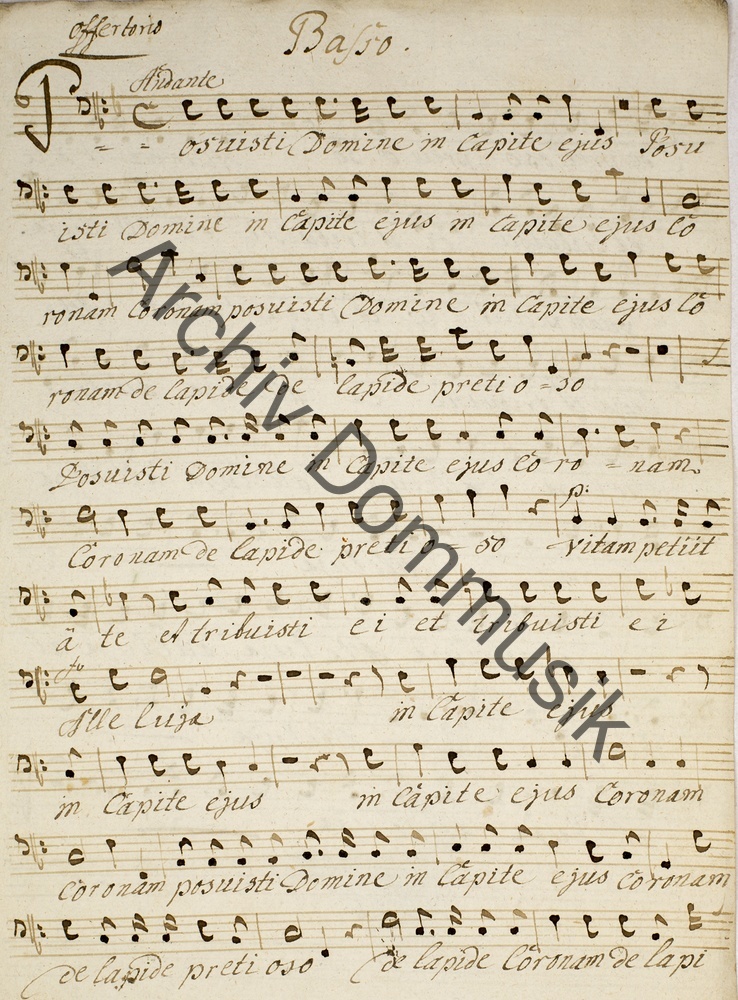 Offertorio
Basso.
Andante
Posuisti Domine in Capite ejus Posu
isti Domine in Capite ejus in Capite ejus Co
ronam Coronam posuisti Domine in Capite ejus Co
ronam de lapide de lapide preti o = so
Posuisti Domine in Capite ejus Co ro = nam
p:
Coronam de lapide preti o = so Vitam petiit
a te et tribuisti ei et tribuisti ei
fo
Alle luja in Capite ejus
in Capite ejus in Capite ejus Coronam
Coronam posuisti Domine in Capite ejus Coronam
de lapide preti oso de lapide Coronam de lapi
Archiv Dommusik